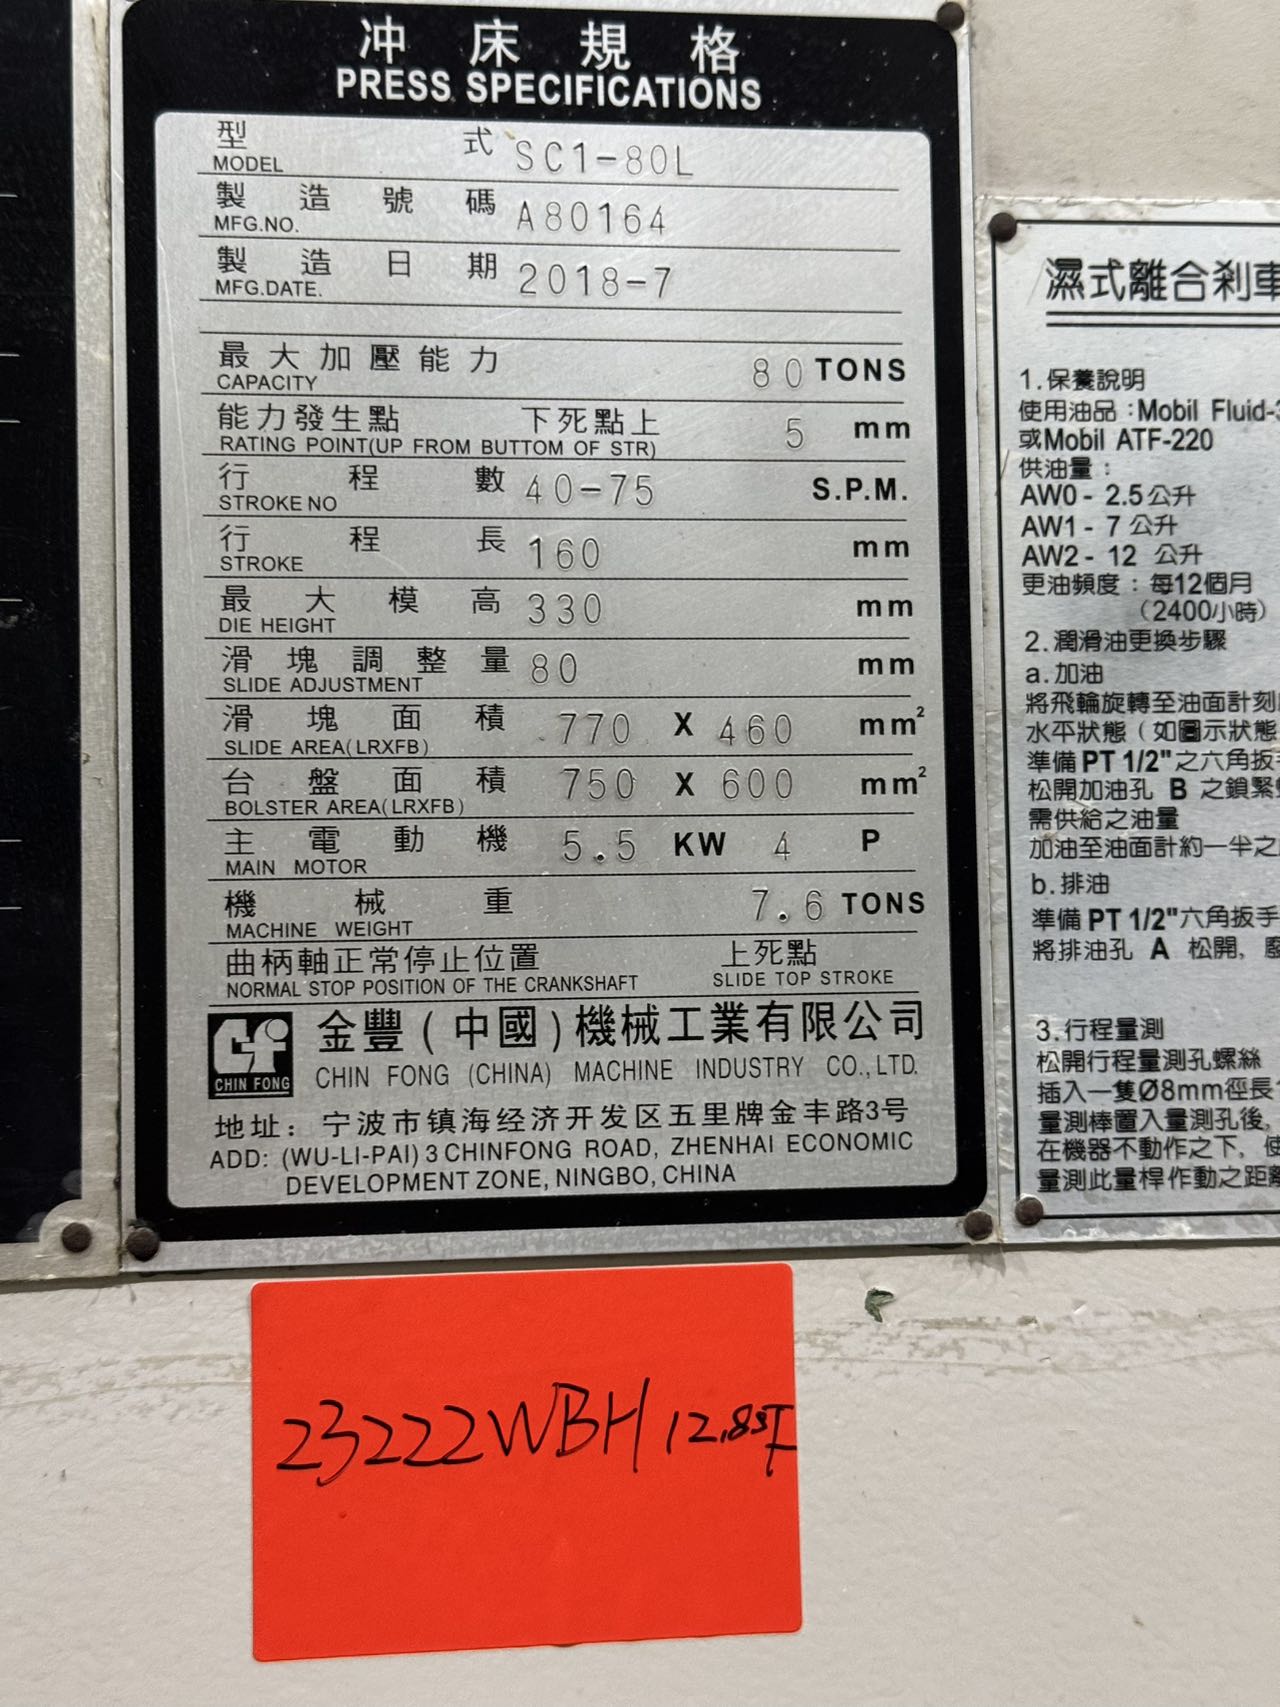 冲床規格
PRESS SPECIFICATIONS
型式 SC1-80L
MODEL
製造號碼 A80164
MFG.NO.
製造日期 2018-7
MFG.DATE.
最大加壓能力 80 TONS
CAPACITY
能力發生點 下死點上 5 mm
RATING POINT(UP FROM BUTTOM OF STR)
行程數 40-75 S.P.M.
STROKE NO
行程長 160 mm
STROKE
最大模高 330 mm
DIE HEIGHT
滑塊調整量 80 mm
SLIDE ADJUSTMENT
滑塊面積 770 X 460 mm²
SLIDE AREA(LRXFB)
台盤面積 750 X 600 mm²
BOLSTER AREA(LRXFB)
主電動機 5.5 KW 4 P
MAIN MOTOR
機械重 7.6 TONS
MACHINE WEIGHT
曲柄軸正常停止位置 上死點
NORMAL STOP POSITION OF THE CRANKSHAFT SLIDE TOP STROKE
CHIN FONG
金豐(中國)機械工業有限公司
CHIN FONG (CHINA) MACHINE INDUSTRY CO., LTD.
地址: 宁波市镇海经济开发区五里牌金丰路3号
ADD: (WU-LI-PAI) 3 CHINFONG ROAD, ZHENHAI ECONOMIC
DEVELOPMENT ZONE, NINGBO, CHINA
濕式離合刹車
1.保養說明
使用油品:Mobil Fluid-
或Mobil ATF-220
供油量:
AW0- 2.5公升
AW1- 7 公升
AW2- 12 公升
更油頻度:每12個月
(2400小時)
2.潤滑油更換步驟
a.加油
將飛輪旋轉至油面計刻
水平狀態(如圖示狀態
準備PT 1/2"之六角扳
松開加油孔 B 之鎖緊
需供給之油量
加油至油面計約一半之
b.排油
準備PT 1/2"六角扳手
將排油孔 A 松開,
3.行程量測
松開行程量測孔螺絲
插入一隻Ø8mm徑長
量測棒置入量測孔後,
在機器不動作之下,
量測此量桿作動之距離
23222WBH